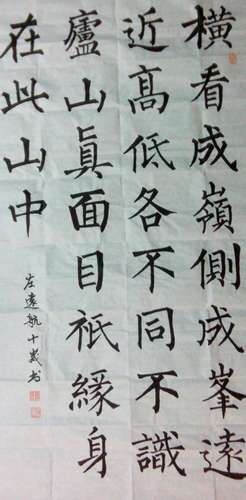 橫看成嶺側成峯遠
近高低各不同不識
廬山眞面目祇緣身
在此山中
左遠航十歲书